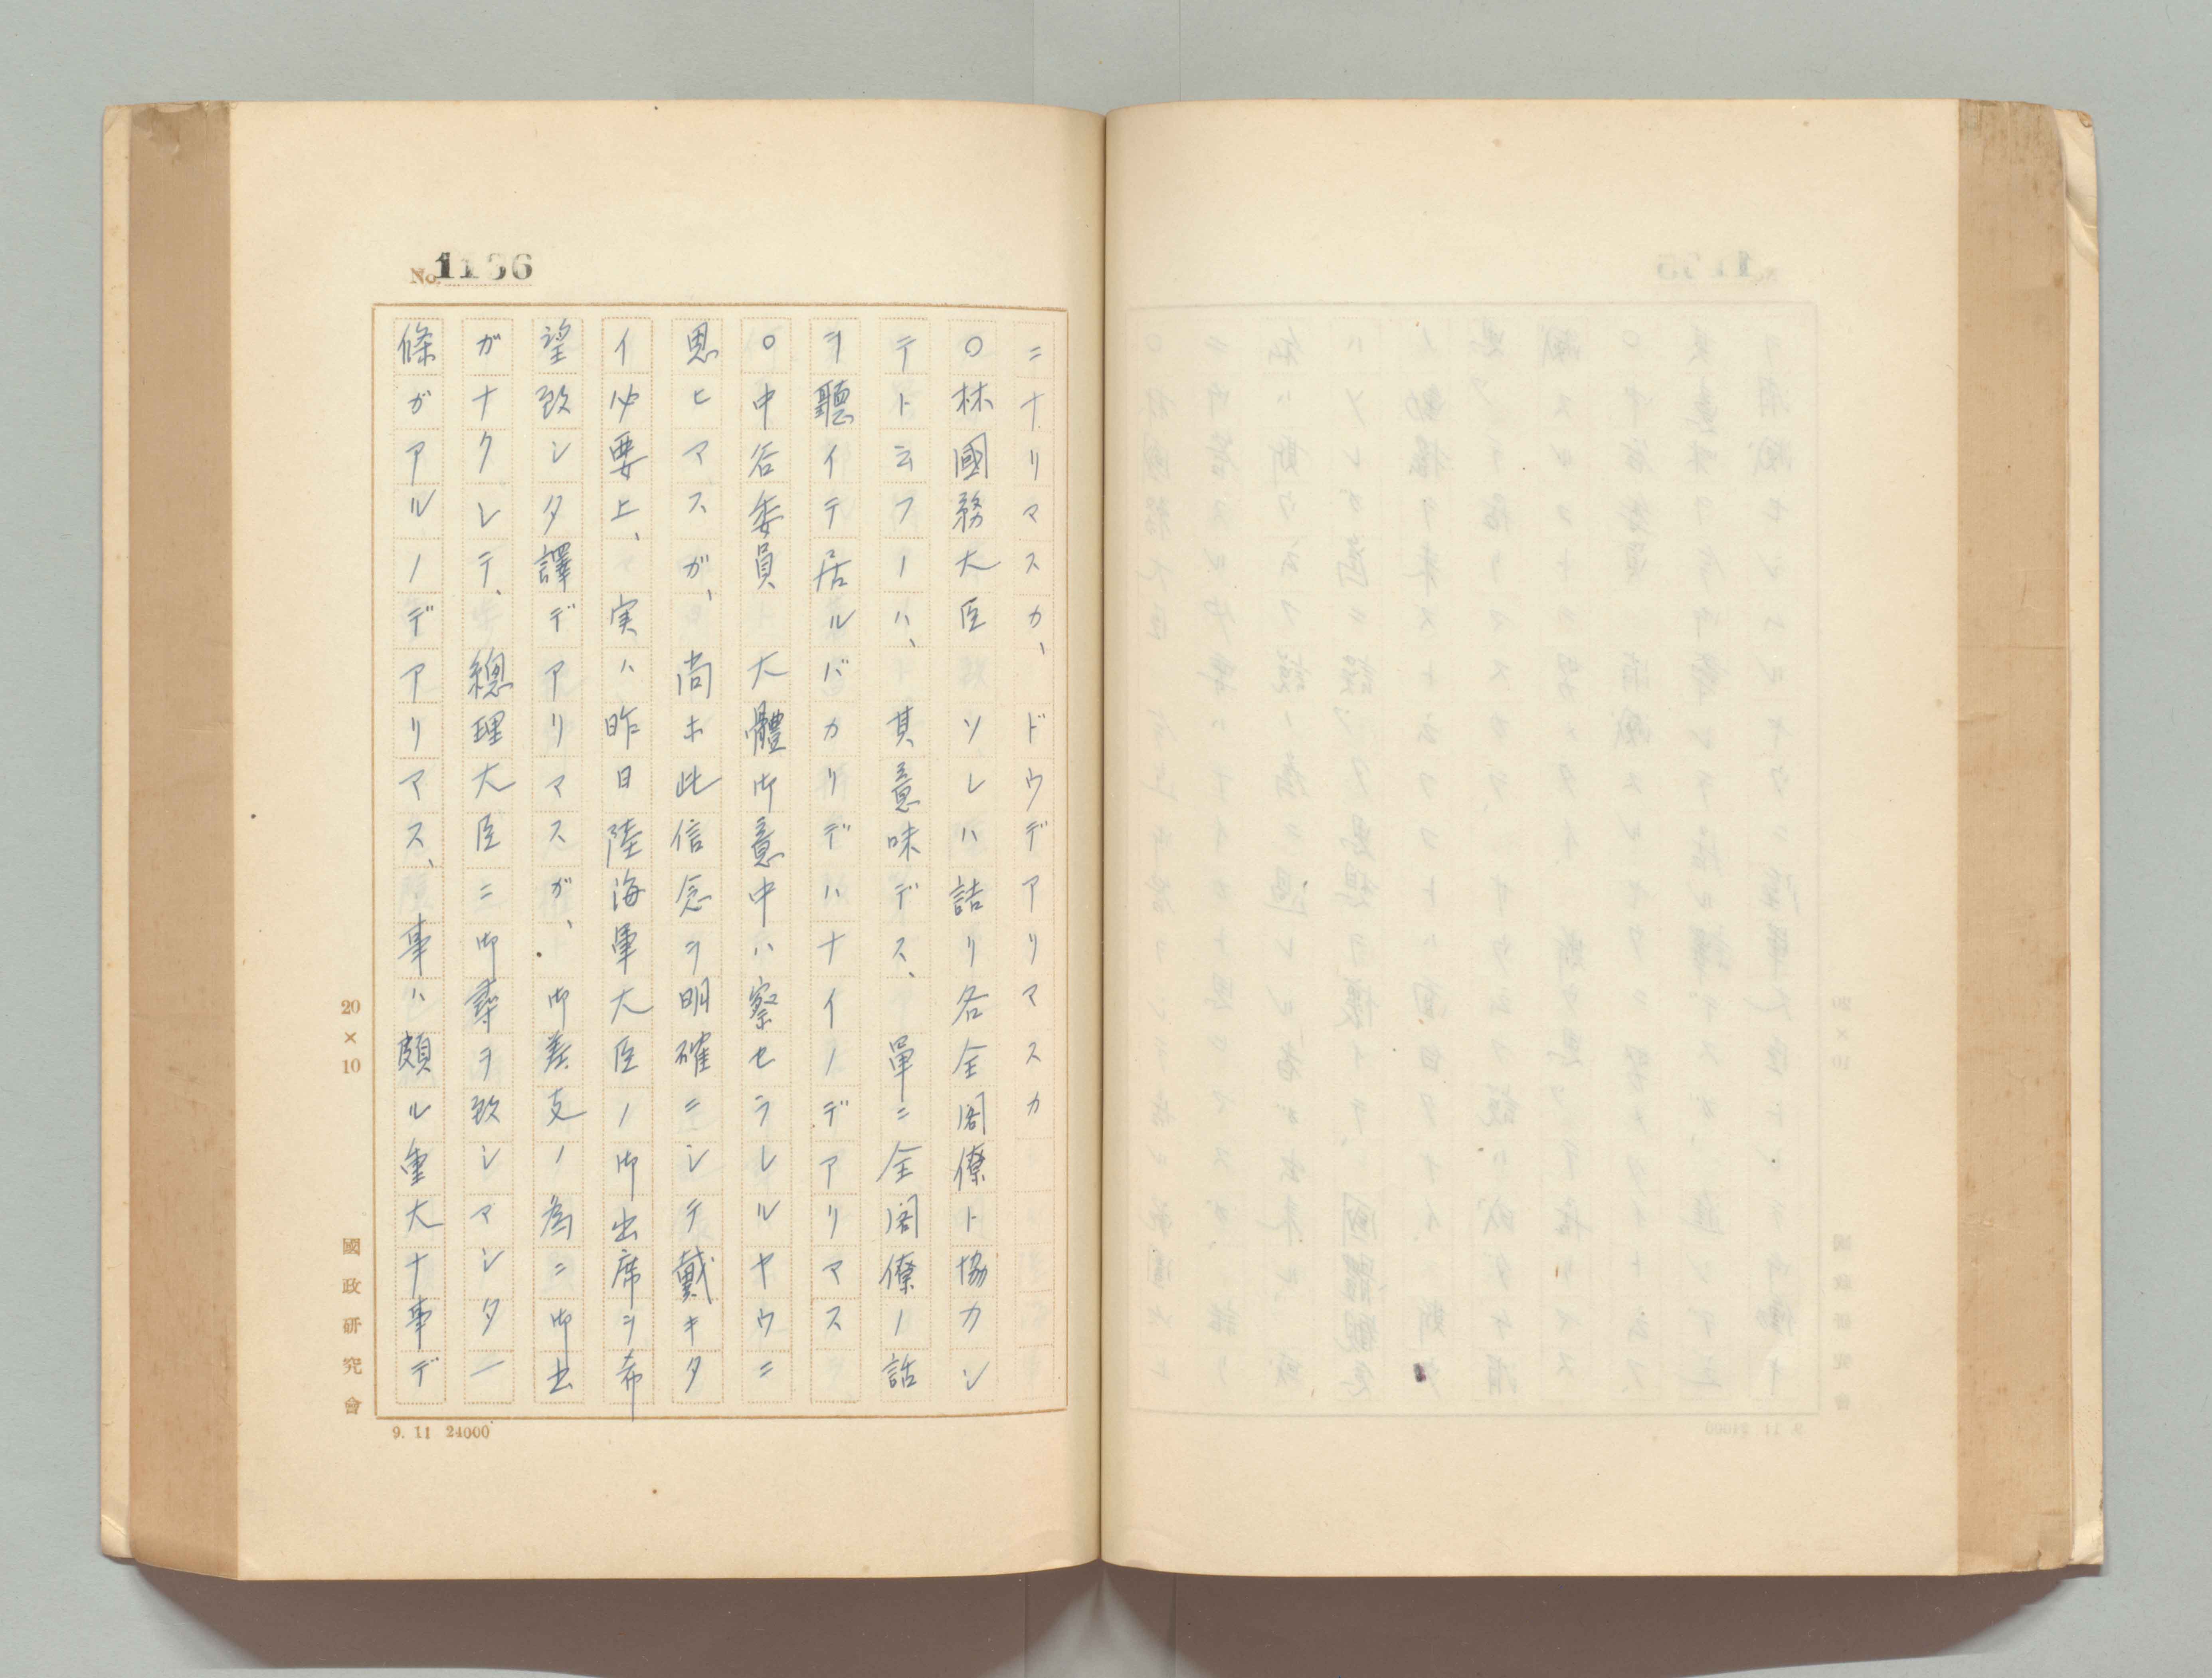 No. 1136
ニナリマスカ、ドウデアリマスカ
○林國務大臣 ソレハ詰リ各全閣僚ト協力シ
テト云フノハ、其意味デス、單ニ全閣僚ノ話
ヲ聽イテ居ルバカリデハナイノデアリマス
○中谷委員 大體御意中ハ察セラレルヤウニ
思ヒマスガ、尚ホ此信念ヲ明確ニシテ戴キタ
イ必要上、実ハ昨日陸海軍大臣ノ御出席ヲ希
望致シタ譯デアリマスガ、御差支ノ為ニ御出
ガナクシテ、總理大臣ニ御尋ヲ致シマシタ一
條ガアルノデアリマス、事ハ頗ル重大ナ事デ
20×10
國政研究會
9. 11 24000